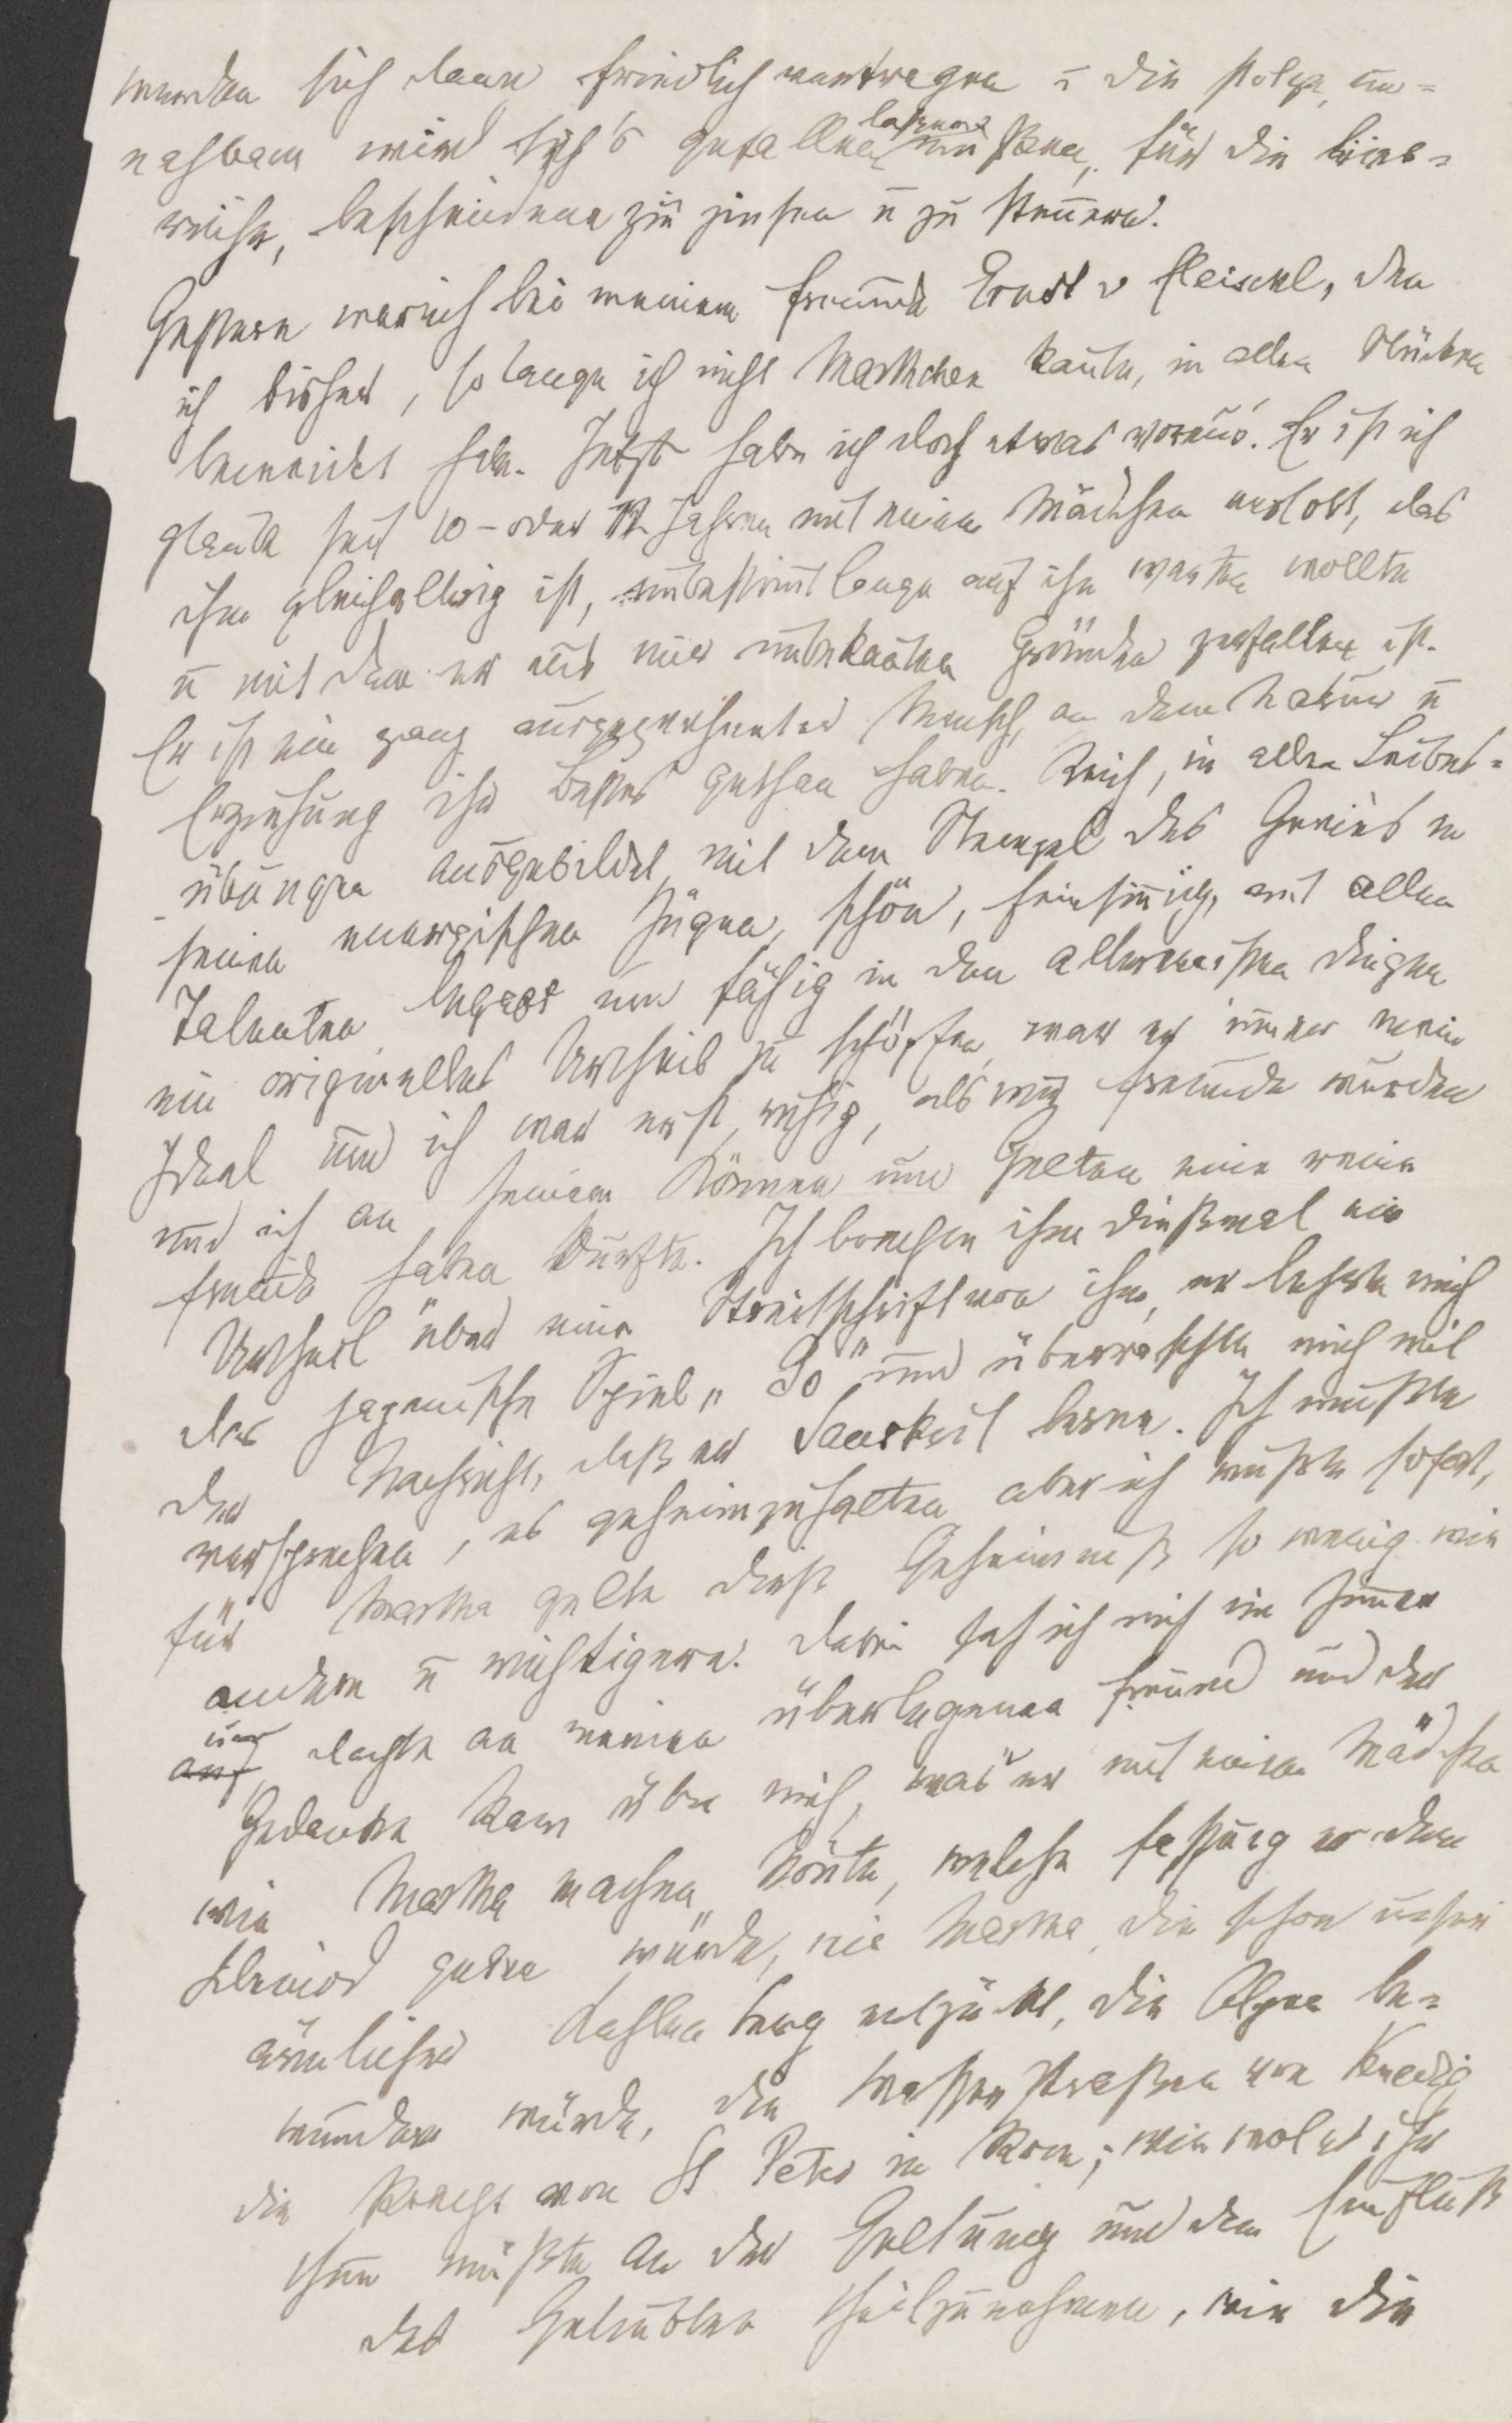 werden sich dann friedlich vertragen u die stolze, un=
nahbare wird sich's gefallen lassen müßen, für die lieb=
reiche, bescheidene zu zinsen u zu steuern.
Gestern war ich bei meinem Freunde Ernst v Fleischl, den
ich bisher, so lange ich nicht Marthchen kannte, in allen Stücken
beneidet habe. Jetzt habe ich doch etwas voraus. Er ist ich
glaube seit 10- oder 12 Jahren mit einem Mädchen verlobt, das
ihm gleichaltrig ist, unbestimmt lange auf ihn warten wollte
u mit dem er aus mir unbekannten Gründen zerfallen ist.
Er ist ein ganz ausgezeichneter Mensch, an dem Natur u
Erziehung ihr Bestes gethan haben. Reich, in allen Leibes=
übungen ausgebildet, mit dem Stempel des Genies in
seinen energischen Zügen, schön, feinsinnig, mit allen
Talenten begabt und fähig in den allermeisten Dingen
ein originelles Urtheil zu schöpfen, war er immer mein
Ideal und ich war erst ruhig, als wir Freunde wurden
und ich an seinem Können und Gelten eine reine
Freude haben durfte. Ich brachte ihm dießmal ein
Urtheil über eine Streitschrift von ihm, er lehrte mich
das japanische Spiel „Go" und überraschte mich mit
der Nachricht, daß er Sanskrit lerne. Ich mußte
versprechen, es geheimzuhalten aber ich wußte sofort,
für Martha gelte dieß Geheimniß so wenig wie
andere u wichtigere. Dabei sah ich mich im Zimmer
um, dachte an meinen überlegenen Freund und der
Gedanke kam über mich, was er mit einem Mädchen
wie Martha machen könnte, welche Fassung er dem
Kleinod geben würde, wie Martha, die schon unser
ärmlicher Kahlenberg entzückt, die Alpen be=
wundern würde, die Wasserstraßen von Venedig,
die Pracht von St Peter in Rom; wie wol es ihr
thun müßte, an der Geltung und dem Einfluß
des Geliebten theilzunehmen, wie die